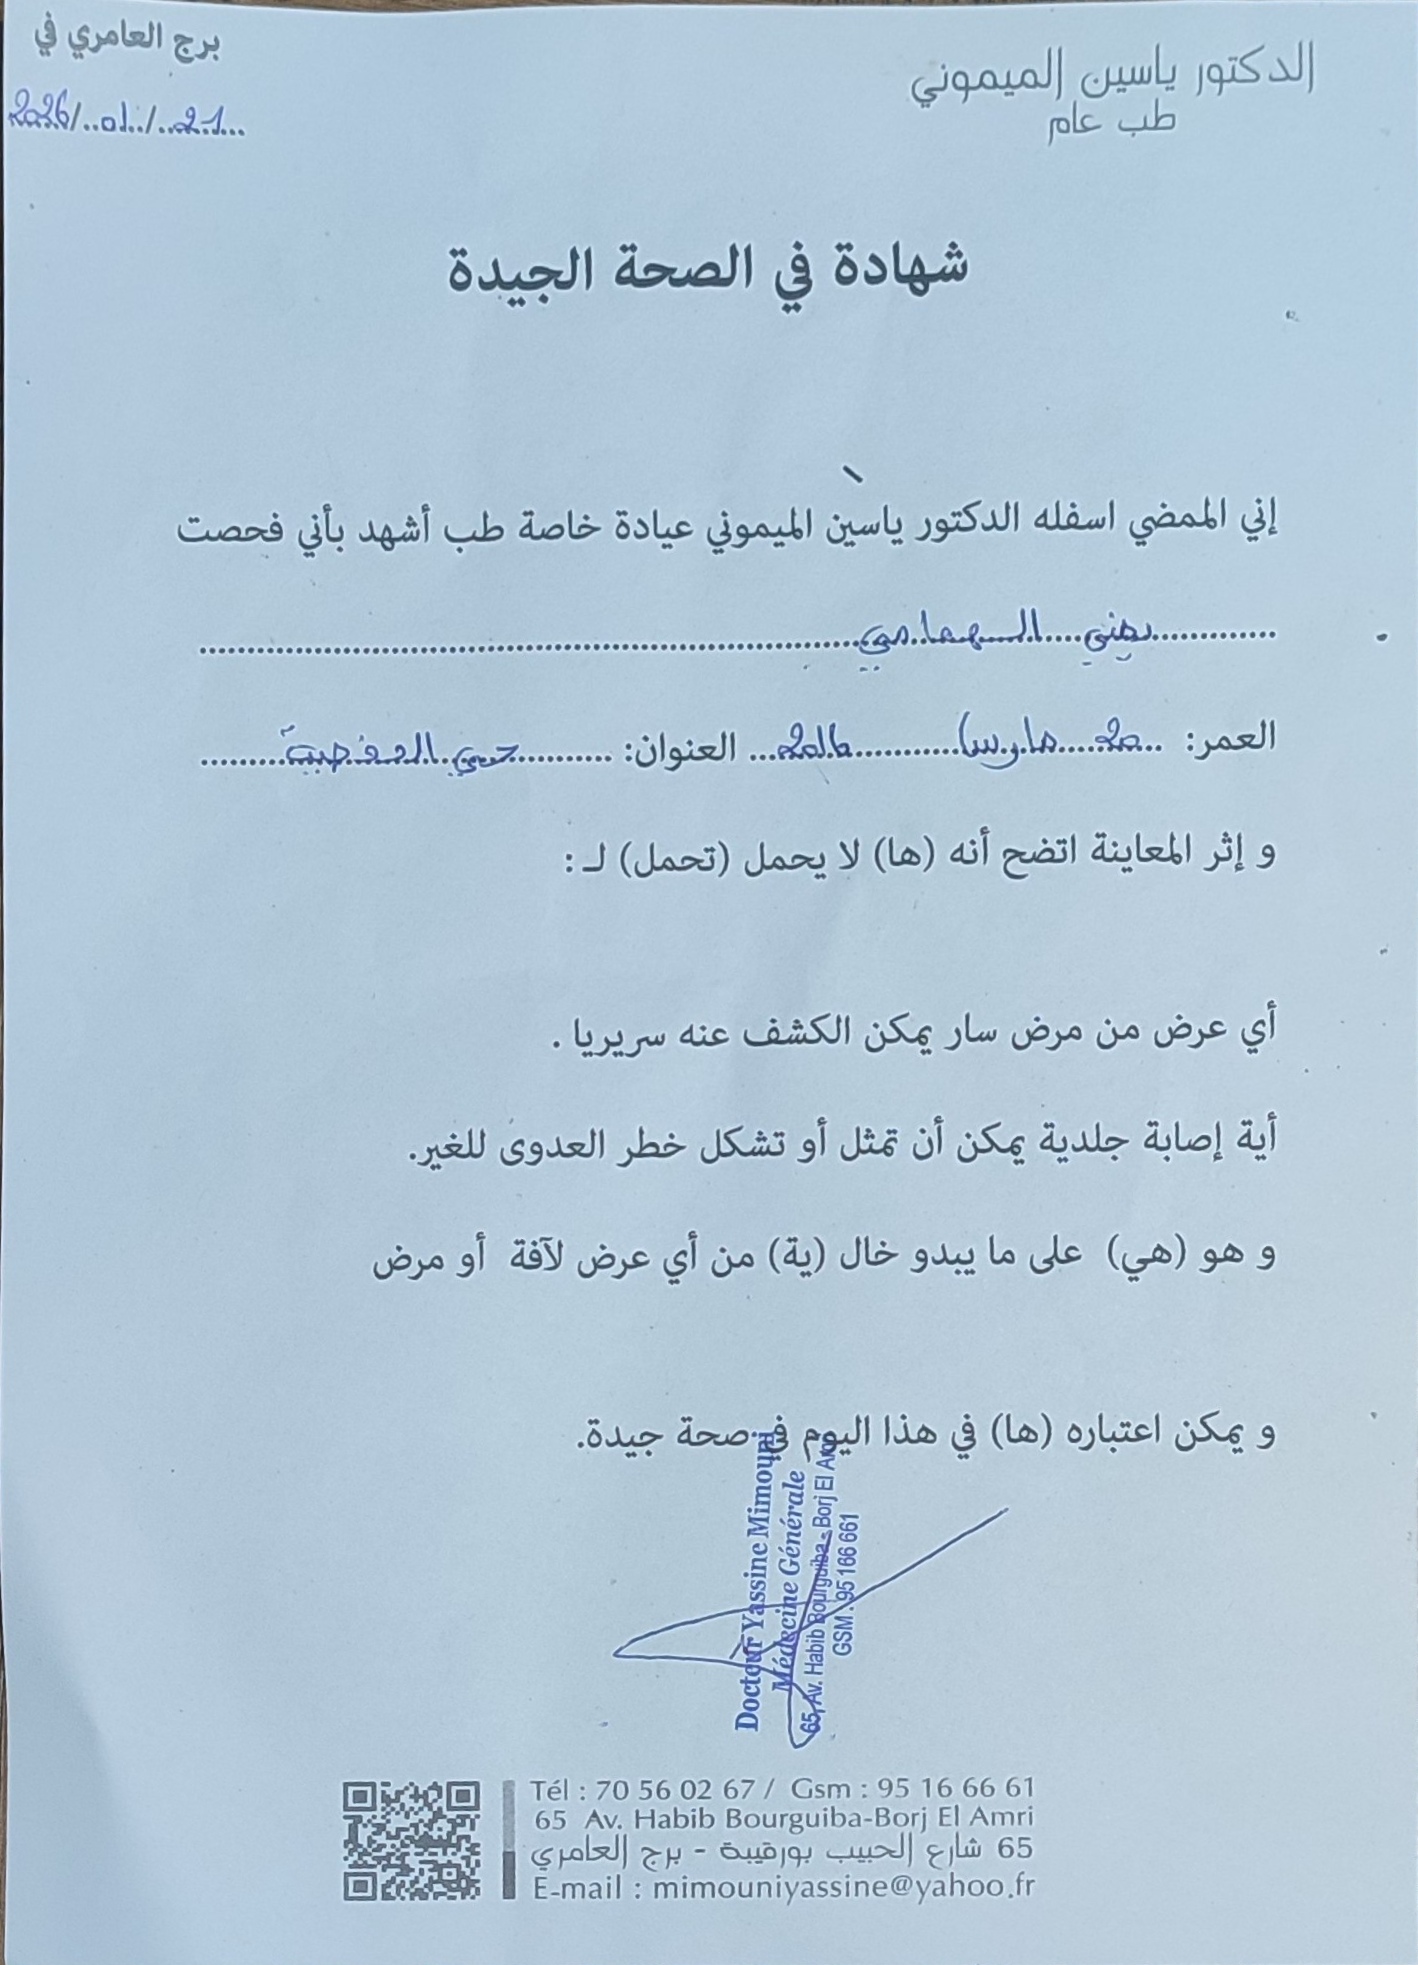 الدكتور ياسين الميموني
طب عام
برج العامري في
2026/..01../..21...
شهادة في الصحة الجيدة
إني الممضي اسفله الدكتور ياسين الميموني عيادة خاصة طب أشهد بأني فحصت
السهامي
العمر: 20 مارس العنوان: حي
و إثر المعاينة اتضح أنه (ها) لا يحمل (تحمل) لـ :
أي عرض من مرض سار يمكن الكشف عنه سريريا .
أية إصابة جلدية يمكن أن تمثل أو تشكل خطر العدوى للغير.
و هو (هي) على ما يبدو خال (ية) من أي عرض لآفة أو مرض
و يمكن اعتباره (ها) في هذا اليوم في صحة جيدة.
Docteur Yassine Mimouni
Médecine Générale
65, Av. Habib Bourguiba - Borj El Am
GSM : 95 166 661
Tél : 70 56 02 67 / Gsm : 95 16 66 61
65 Av. Habib Bourguiba-Borj El Amri
65 شارع الحبيب بورقيبة - برج العامري
E-mail : mimouniyassine@yahoo.fr